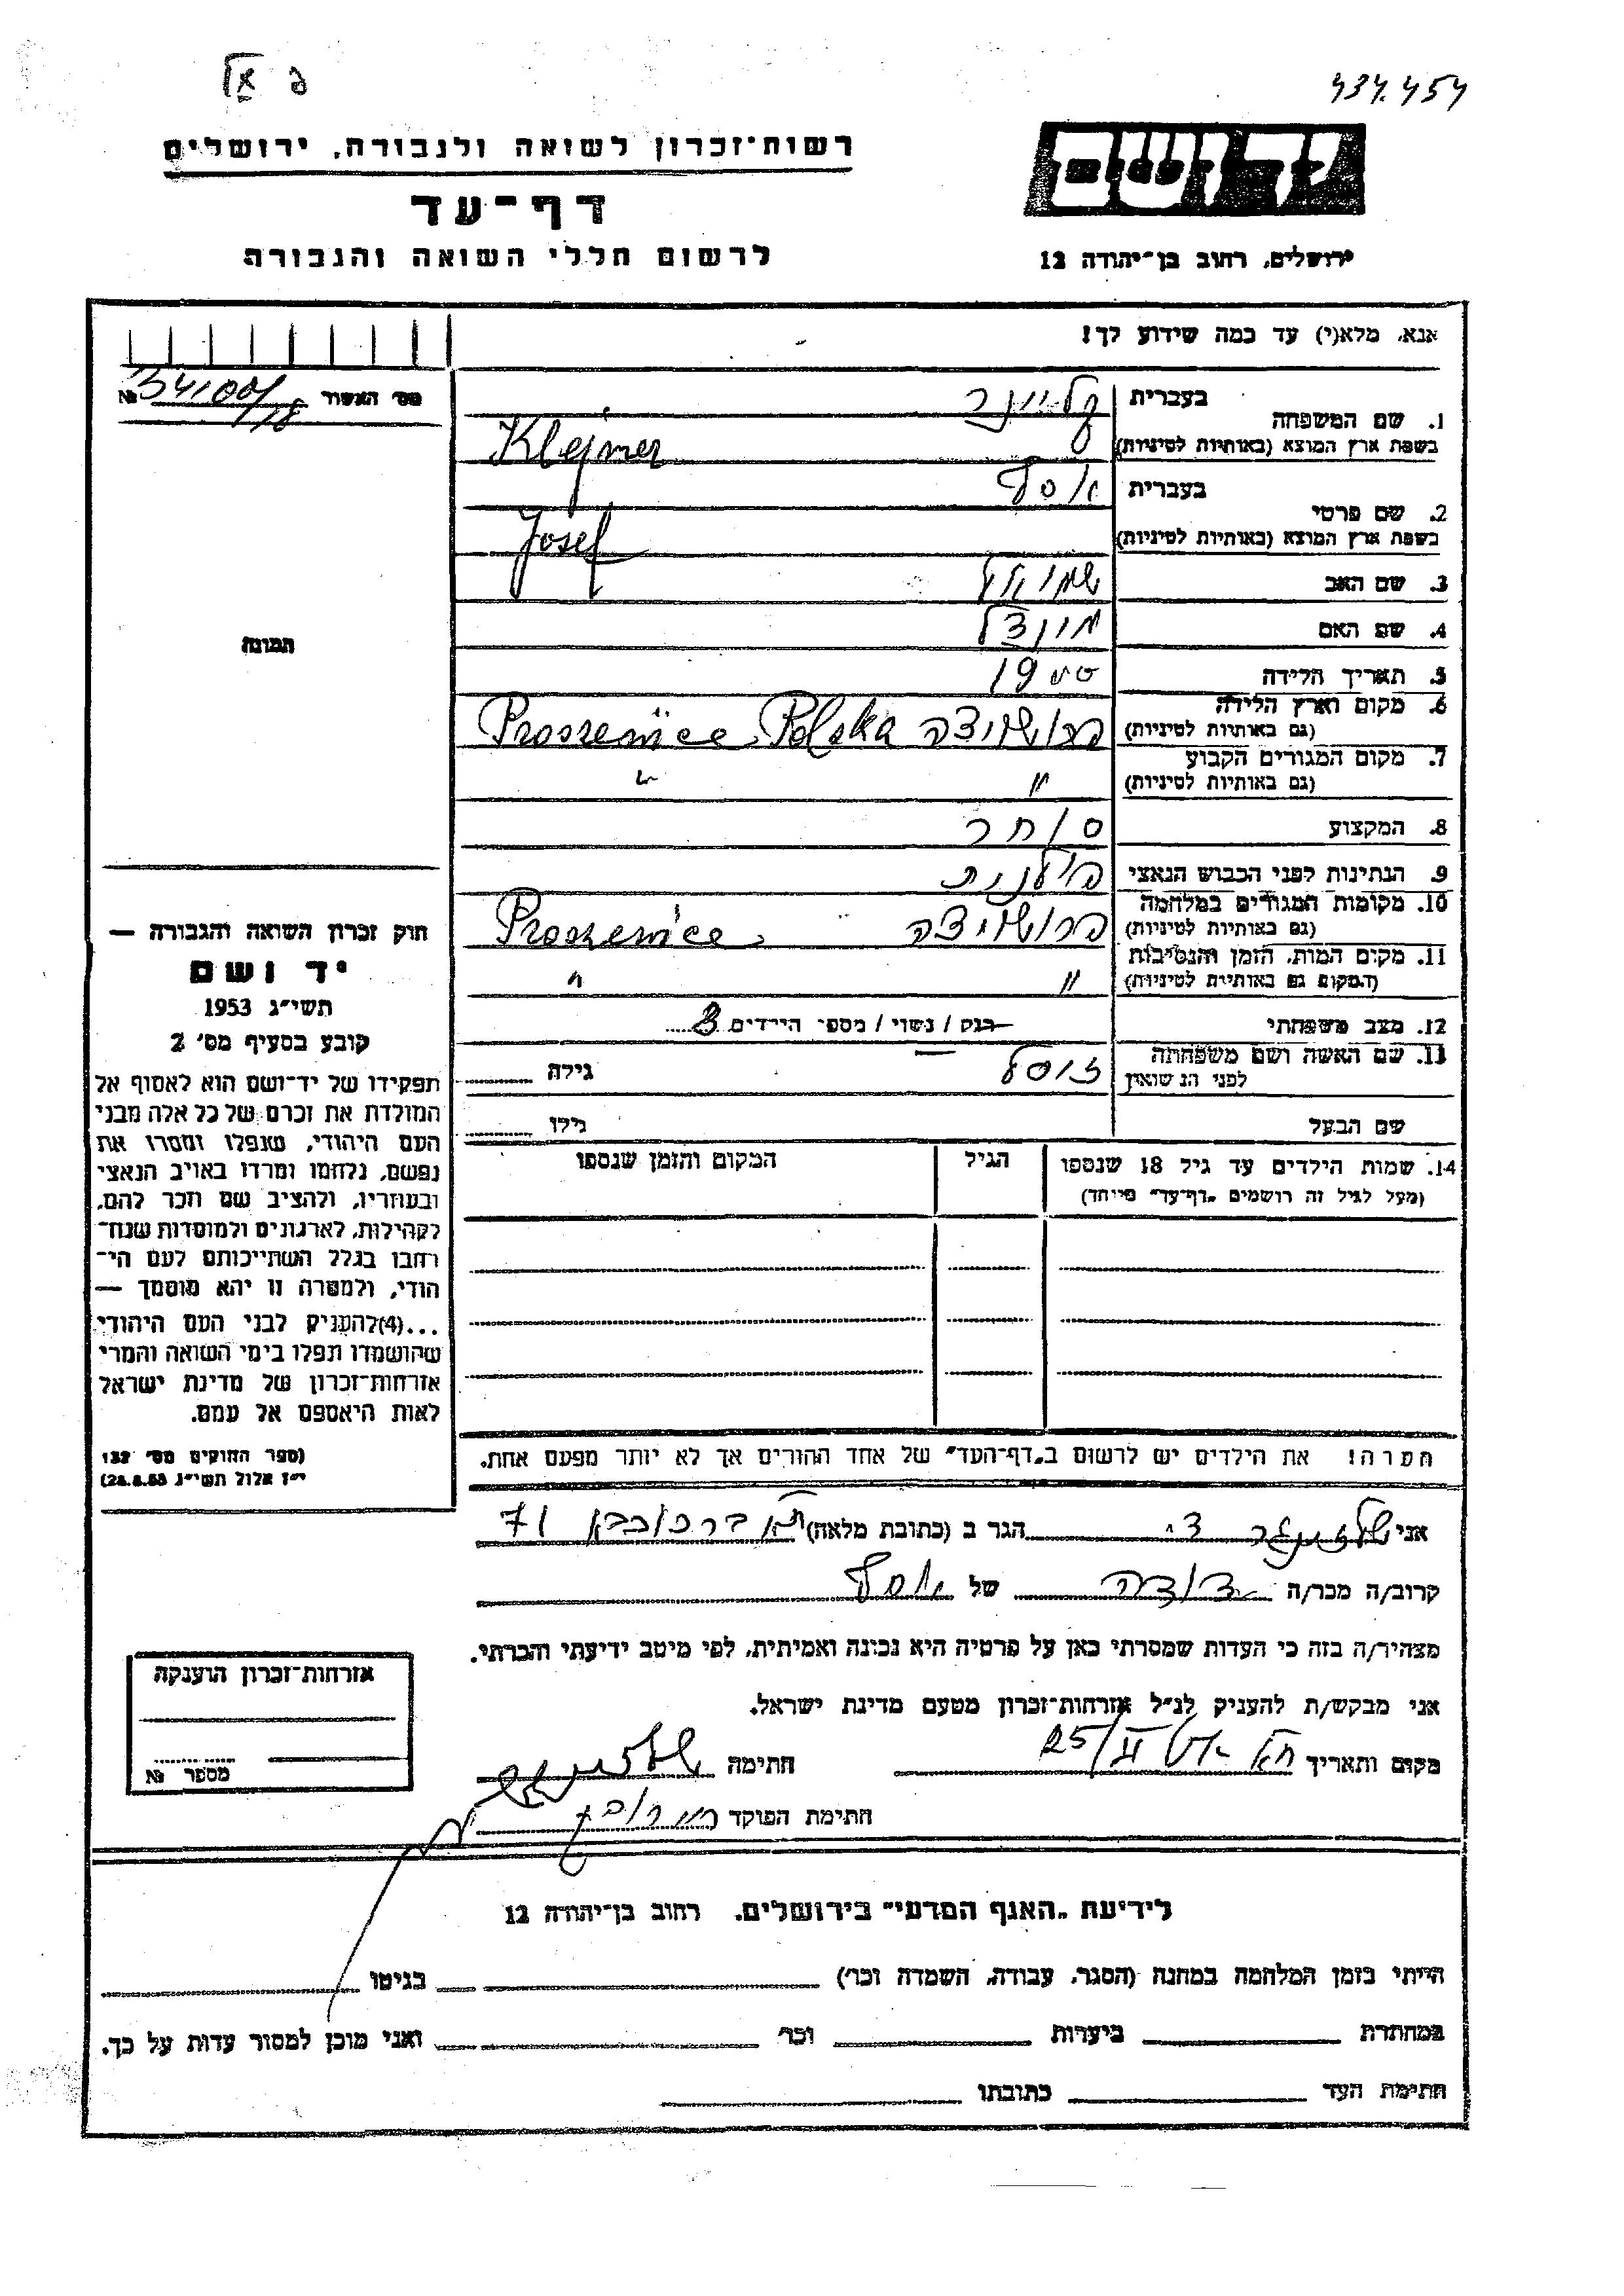 434.454
רשות־זכרון לשואה ולגבורה, ירושלים
יד ושם
דף־עד
לרשום חללי השואה והגבורה
ירושלים, רחוב בן־יהודה 12
אנא, מלא(י) עד כמה שידוע לך!
מס׳ האשור №
1. שם המשפחה בעברית קליינר
בשפת ארץ המוצא (באותיות לטיניות) Klejner
2. שם פרטי בעברית יוסף
בשפת ארץ המוצא (באותיות לטיניות) Josef
3. שם האב שמואל
4. שם האם
5. תאריך הלידה 1900
6. מקום וארץ הלידה (גם באותיות לטיניות) Proszenice Polska
7. מקום המגורים הקבוע (גם באותיות לטיניות) " "
8. המקצוע סוחר
9. הנתינות לפני הכבוש הנאצי פולנית
10. מקומות המגורים במלחמה (גם באותיות לטיניות) Proszenice
11. מקום המות, הזמן והנסיבות (המקום גם באותיות לטיניות) " "
12. מצב משפחתי רווק / נשוי / מספר הילדים 3
13. שם האשה ושם משפחתה לפני הנישואין זיסל גילה
שם הבעל גילו
14. שמות הילדים עד גיל 18 שנספו הגיל המקום והזמן שנספו
(מעל לגיל זה רושמים „דף־עד" מיוחד)
הערה! את הילדים יש לרשום ב„דף־העד" של אחד ההורים אך לא יותר מפעם אחת.
תמונה
חוק זכרון השואה והגבורה —
יד ושם
תשי״ג 1953
קובע בסעיף מס׳ 2
תפקידו של יד־ושם הוא לאסוף אל
המולדת את זכרם של כל אלה מבני
העם היהודי, שנפלו ומסרו את
נפשם, נלחמו ומרדו באויב הנאצי
ובעוזריו, ולהציב שם וזכר להם,
לקהילות, לארגונים ולמוסדות שנח־
רבו בגלל השתייכותם לעם הי־
הודי, ולמטרה זו יהא מוסמך —
...(4)להעניק לבני העם היהודי
שהושמדו ונפלו בימי השואה והמרי
אזרחות־זכרון של מדינת ישראל
לאות היאספם אל עמם.
(ספר החוקים מס׳ 132
י״ז אלול תשי״ג 28.8.53)
אני שלזינגר ד. הגר ב (כתובת מלאה) ת״א בר כוכבא 71
קרוב/ה מכר/ה דודה של יוסף
מצהיר/ה בזה כי העדות שמסרתי כאן על פרטיה היא נכונה ואמיתית, לפי מיטב ידיעתי והכרתי.
אני מבקש/ת להעניק לנ״ל אזרחות־זכרון מטעם מדינת ישראל.
מקום ותאריך 25/II חתימה שלזינגר
חתימת הפוקד
אזרחות־זכרון הוענקה
מספר №
לידיעת „האגף המדעי" בירושלים, רחוב בן־יהודה 12
הייתי בזמן המלחמה במחנה (הסגר, עבודה, השמדה וכו׳) בגיטו
במחתרת ביערות וכו׳ ואני מוכן למסור עדות על כך.
חתימת העד כתובתו